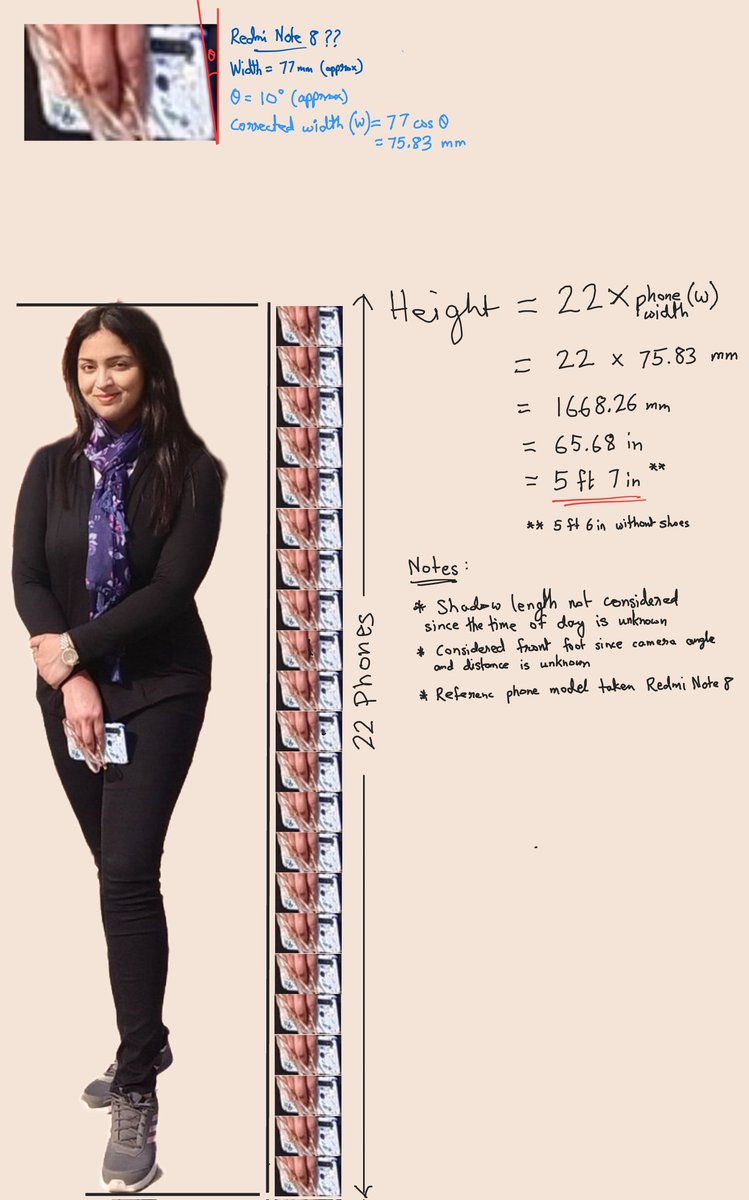 Redmi Note 8 ??
Width = 77 mm (approx)
θ = 10° (approx)
Corrected width (w) = 77 cos θ
= 75.83 mm
θ
Height = 22 × phone width (w)
= 22 × 75.83 mm
= 1668.26 mm
= 65.68 in
= 5 ft 7 in **
** 5 ft 6 in without shoes
22 Phones
Notes:
* Shadow length not considered
since the time of day is unknown
* Considered front foot since camera angle
and distance is unknown
* Referenc phone model taken Redmi Note 8